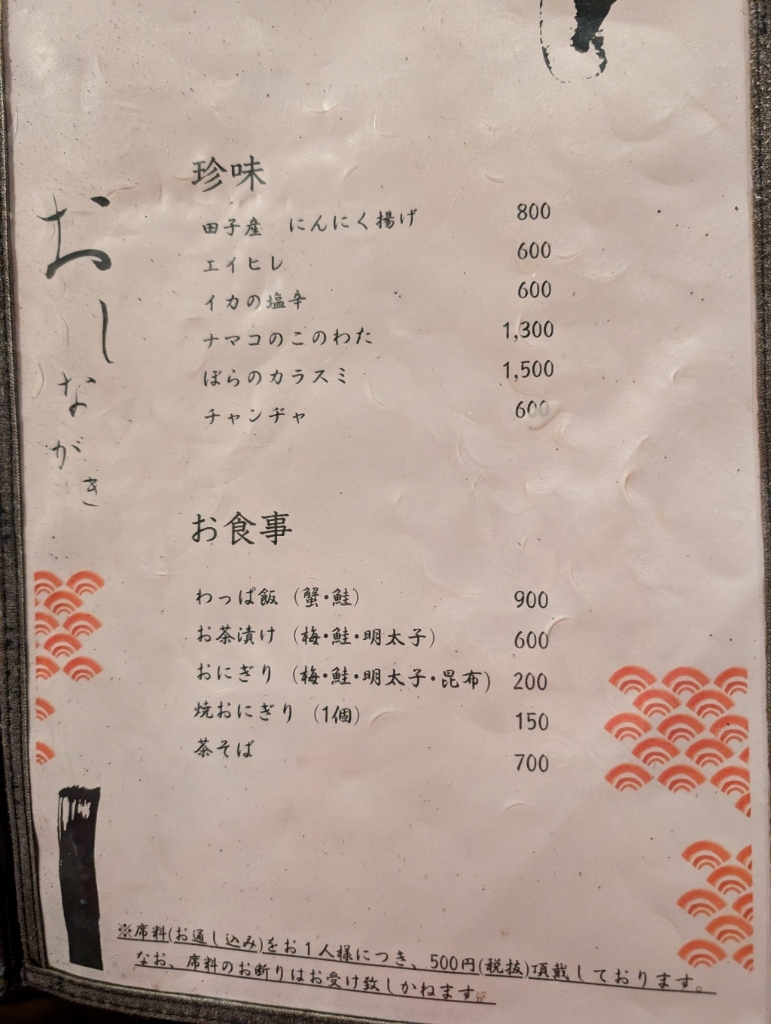 おしながき
珍味
田子産 にんにく揚げ 800
エイヒレ 600
イカの塩辛 600
ナマコのこのわた 1,300
ぼらのカラスミ 1,500
チャンヂャ 600
お食事
わっぱ飯 (蟹・鮭) 900
お茶漬け (梅・鮭・明太子) 600
おにぎり (梅・鮭・明太子・昆布) 200
焼おにぎり (1個) 150
茶そば 700
※席料(お通し込み)をお1人様につき、500円(税抜)頂戴しております。
なお、席料のお断りはお受け致しかねます。